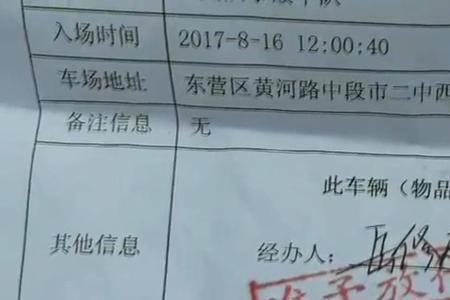 入场时间 2017-8-16 12:00:40
车场地址 东营区黄河路中段市二中西
备注信息 无
此车辆（物品
其他信息 经办人：
准予放行